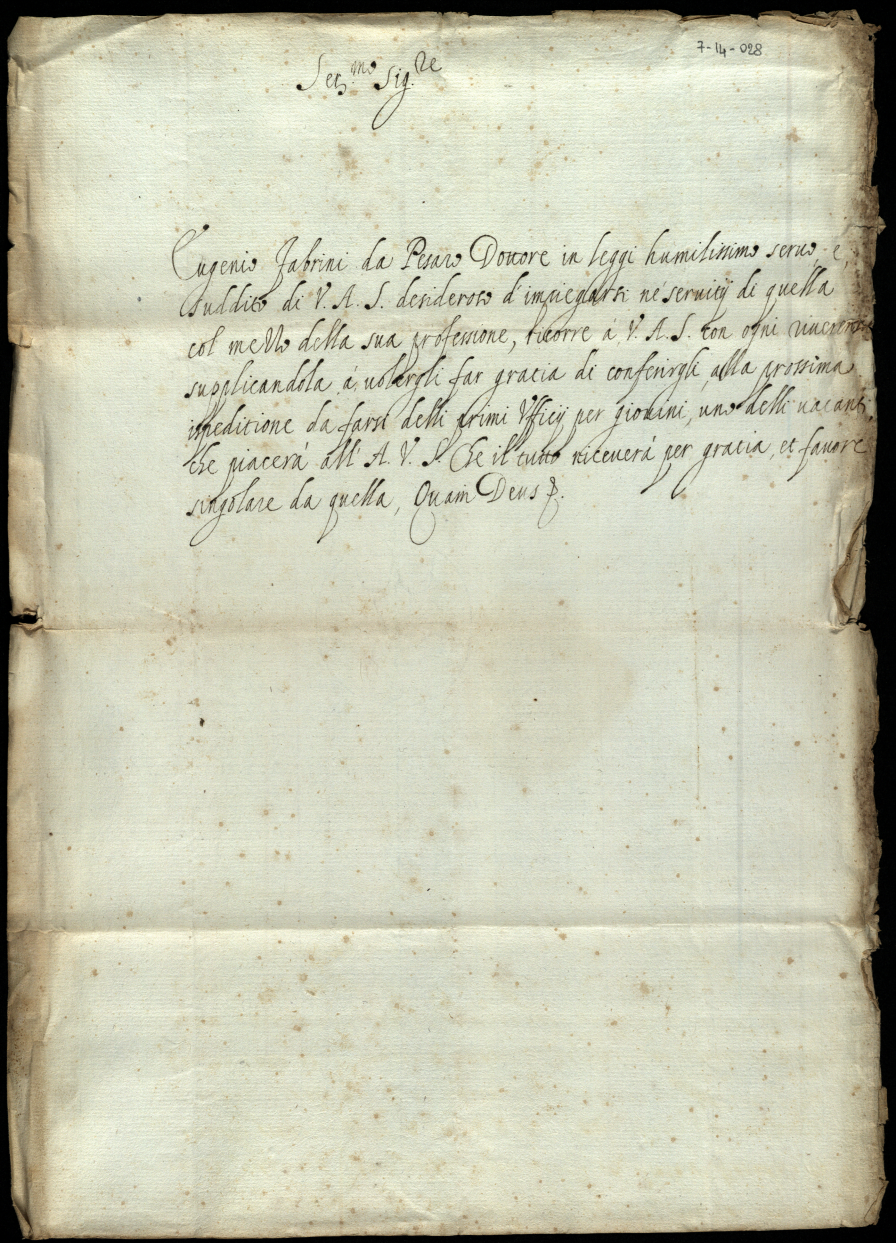 7-14-028
Ser.mo Sig.re
Eugenio Fabrini da Pesaro Dottore in leggi humilissimo seruo, e,
suddito di V. A. S. desideroso d'impiegarsi ne' seruitij di quella
col mezzo della sua professione, ricorre à V. A. S. con ogni riuerenza
supplicandola, à uolergli far gracia di conferirgli, alla prossima
ispeditione da farsi delli primi Vfficij per giouini, uno delli uacanti,
che piacerà all' A. V. S. Che il tutto riceuerà per gratia, et fauore
singolare da quella, Quam Deus &.